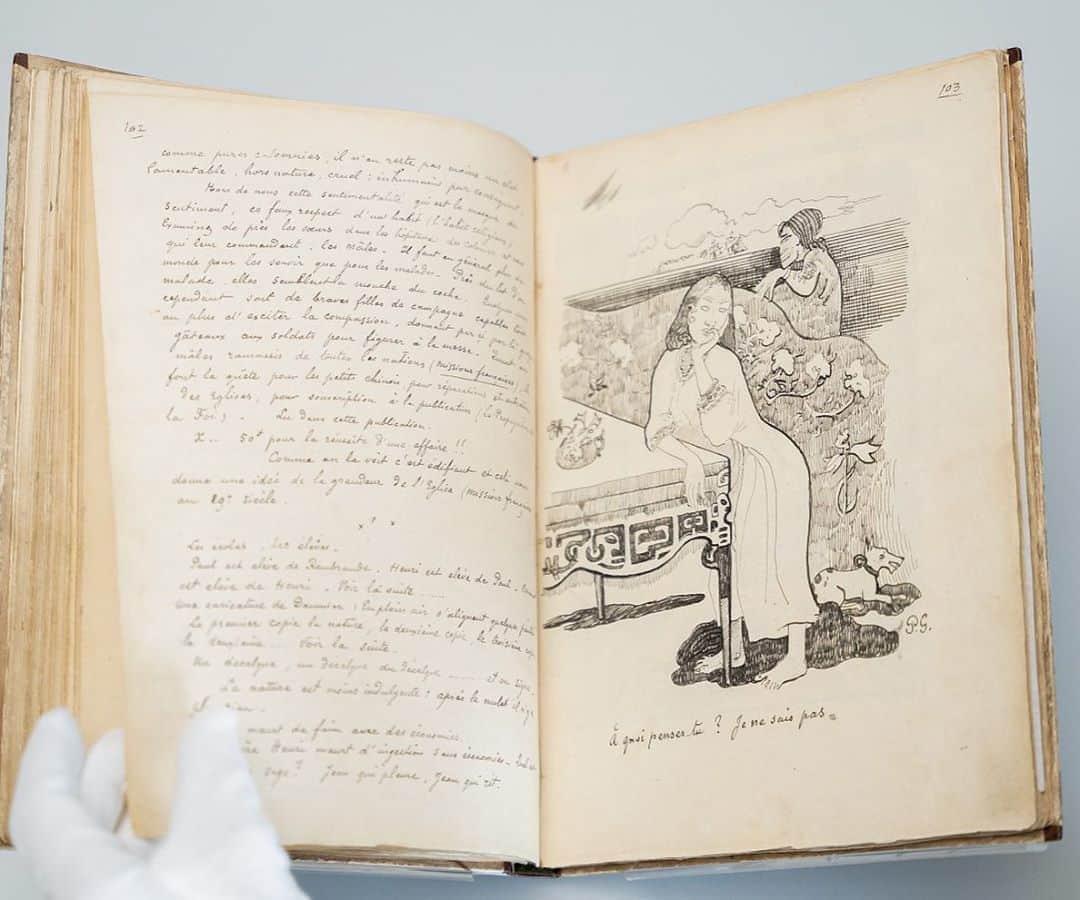 102
comme pures calomnies, il n'en reste pas moins un état
lamentable, hors nature, cruel : inhumain par conséquent.
Hors de nous cette sentimentalité qui est le masque du
sentiment, ce faux respect d'un habit (l'habit religieux)
Examinez de près les sœurs dans les hôpitaux des colonies et ceux
qui leur commandent, les mâles. Il faut en général plus de
monde pour les servir que pour les malades. Près du lit d'un
malade, elles semblent la mouche du coche.
cependant sont de braves filles de campagne capables tout
au plus d'exciter la compassion, donnant par ci par là
gâteaux aux soldats pour figurer à la messe. Quant aux
mâles ramassis de toutes les nations (missions françaises),
font la quête pour les petits chinois, pour réparations et
des Eglises, pour souscription à la publication, (la Propagation de
la Foi) - Lu dans cette publication.
X... 50f pour la réussite d'une affaire !!
Comme on le voit c'est édifiant et cela vous
donne une idée de la grandeur de l'Eglise (missions françaises)
au 19e siècle.
x ? x
Les écoles, les élèves.
Paul est elève de Rembrandt. Henri est elève de Paul.
est elève de Henri. Voir la suite ......
Une caricature de Daumier : En plein air s'alignent quelques
Le premier copie la nature, le deuxième copie le
le deuxième ..... Voir la suite.
Un décalque, un décalque du décalque ...... et on signe.
La nature est moins indulgente : après le mulet il n'y a
rien.
meurt de faim avec des économies.
Henri meurt d'ingestion sans économies.
sage ? Jean qui pleure, Jean qui rit.
103
P.G.
À quoi penses tu ? Je ne sais pas =